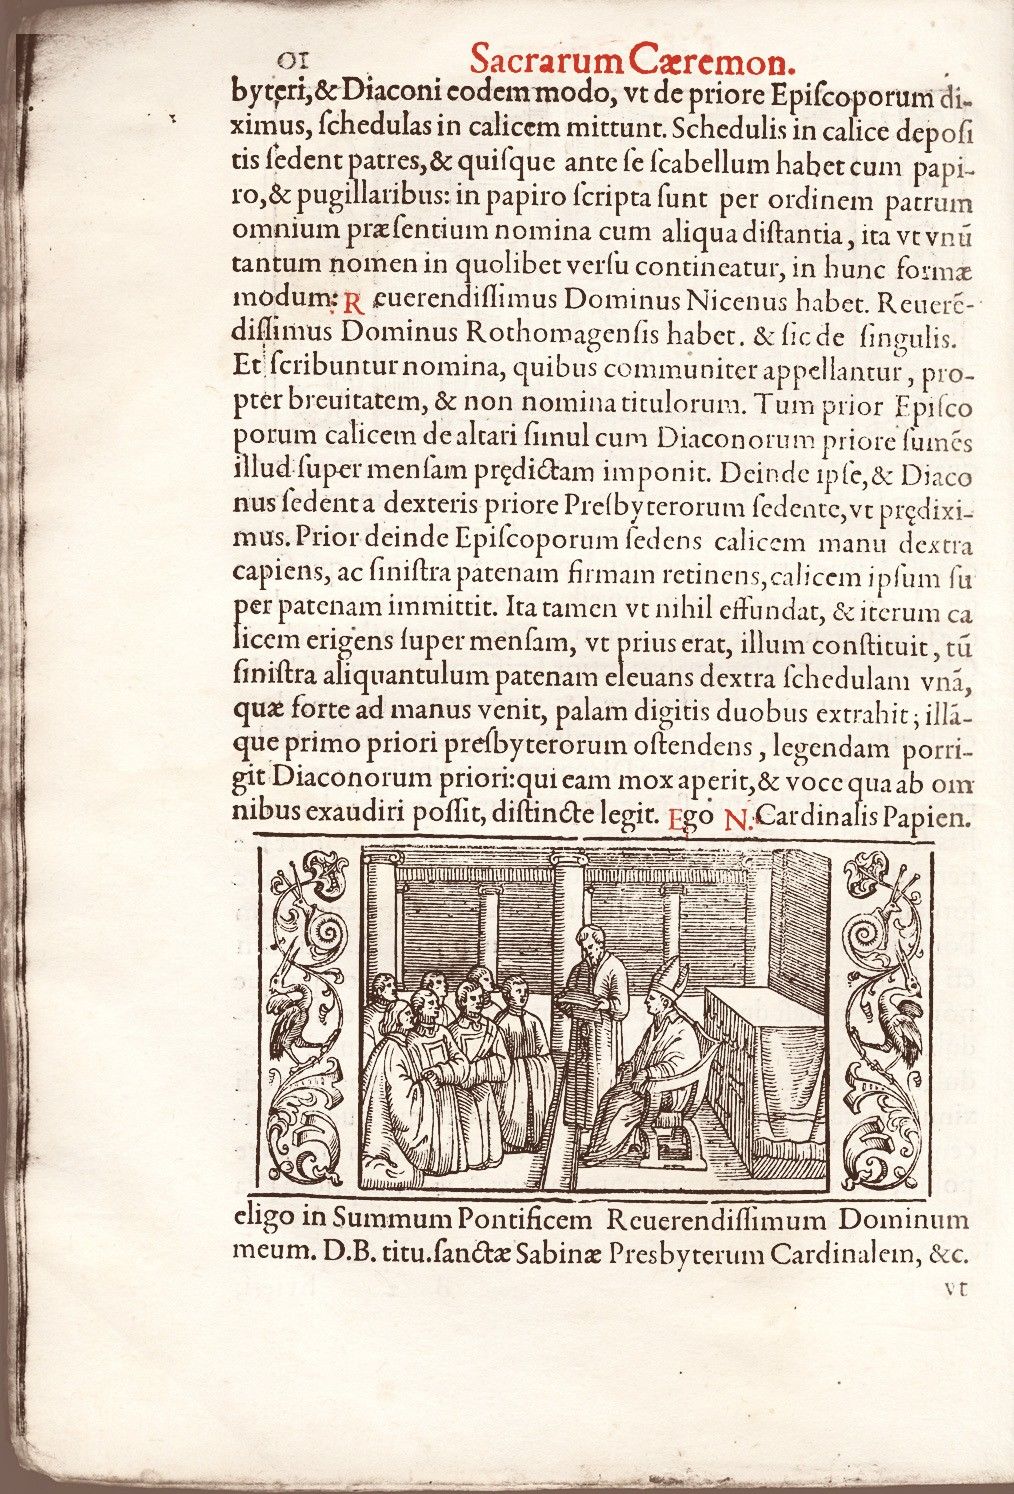 01 Sacrarum Cæremon.
byteri, & Diaconi eodem modo, vt de priore Epiſcoporum di-
ximus, ſchedulas in calicem mittunt. Schedulis in calice depoſi
tis ſedent patres, & quiſque ante ſe ſcabellum habet cum papi-
ro, & pugillaribus: in papiro ſcripta ſunt per ordinem patrum
omnium præſentium nomina cum aliqua diſtantia, ita vt vnũ
tantum nomen in quolibet verſu contineatur, in hunc formæ
modum: Reuerendiſſimus Dominus Nicenus habet. Reuerẽ-
diſſimus Dominus Rothomagenſis habet. & ſic de ſingulis.
Et ſcribuntur nomina, quibus communiter appellantur, pro-
pter breuitatem, & non nomina titulorum. Tum prior Epiſco
porum calicem de altari ſimul cum Diaconorum priore ſumẽs
illud ſuper menſam prędictam imponit. Deinde ipſe, & Diaco
nus ſedent a dexteris priore Preſbyterorum ſedente, vt prędixi-
mus. Prior deinde Epiſcoporum ſedens calicem manu dextra
capiens, ac ſiniſtra patenam firmam retinens, calicem ipſum ſu
per patenam immittit. Ita tamen vt nihil effundat, & iterum ca
licem erigens ſuper menſam, vt prius erat, illum conſtituit, tũ
ſiniſtra aliquantulum patenam eleuans dextra ſchedulam vnã,
quæ forte ad manus venit, palam digitis duobus extrahit; illã-
que primo priori preſbyterorum oſtendens, legendam porri-
git Diaconorum priori: qui eam mox aperit, & voce qua ab om
nibus exaudiri poſſit, diſtincte legit. Ego N. Cardinalis Papien.
eligo in Summum Pontificem Reuerendiſſimum Dominum
meum. D.B. titu. ſanctæ Sabinæ Presbyterum Cardinalem, &c.
vt